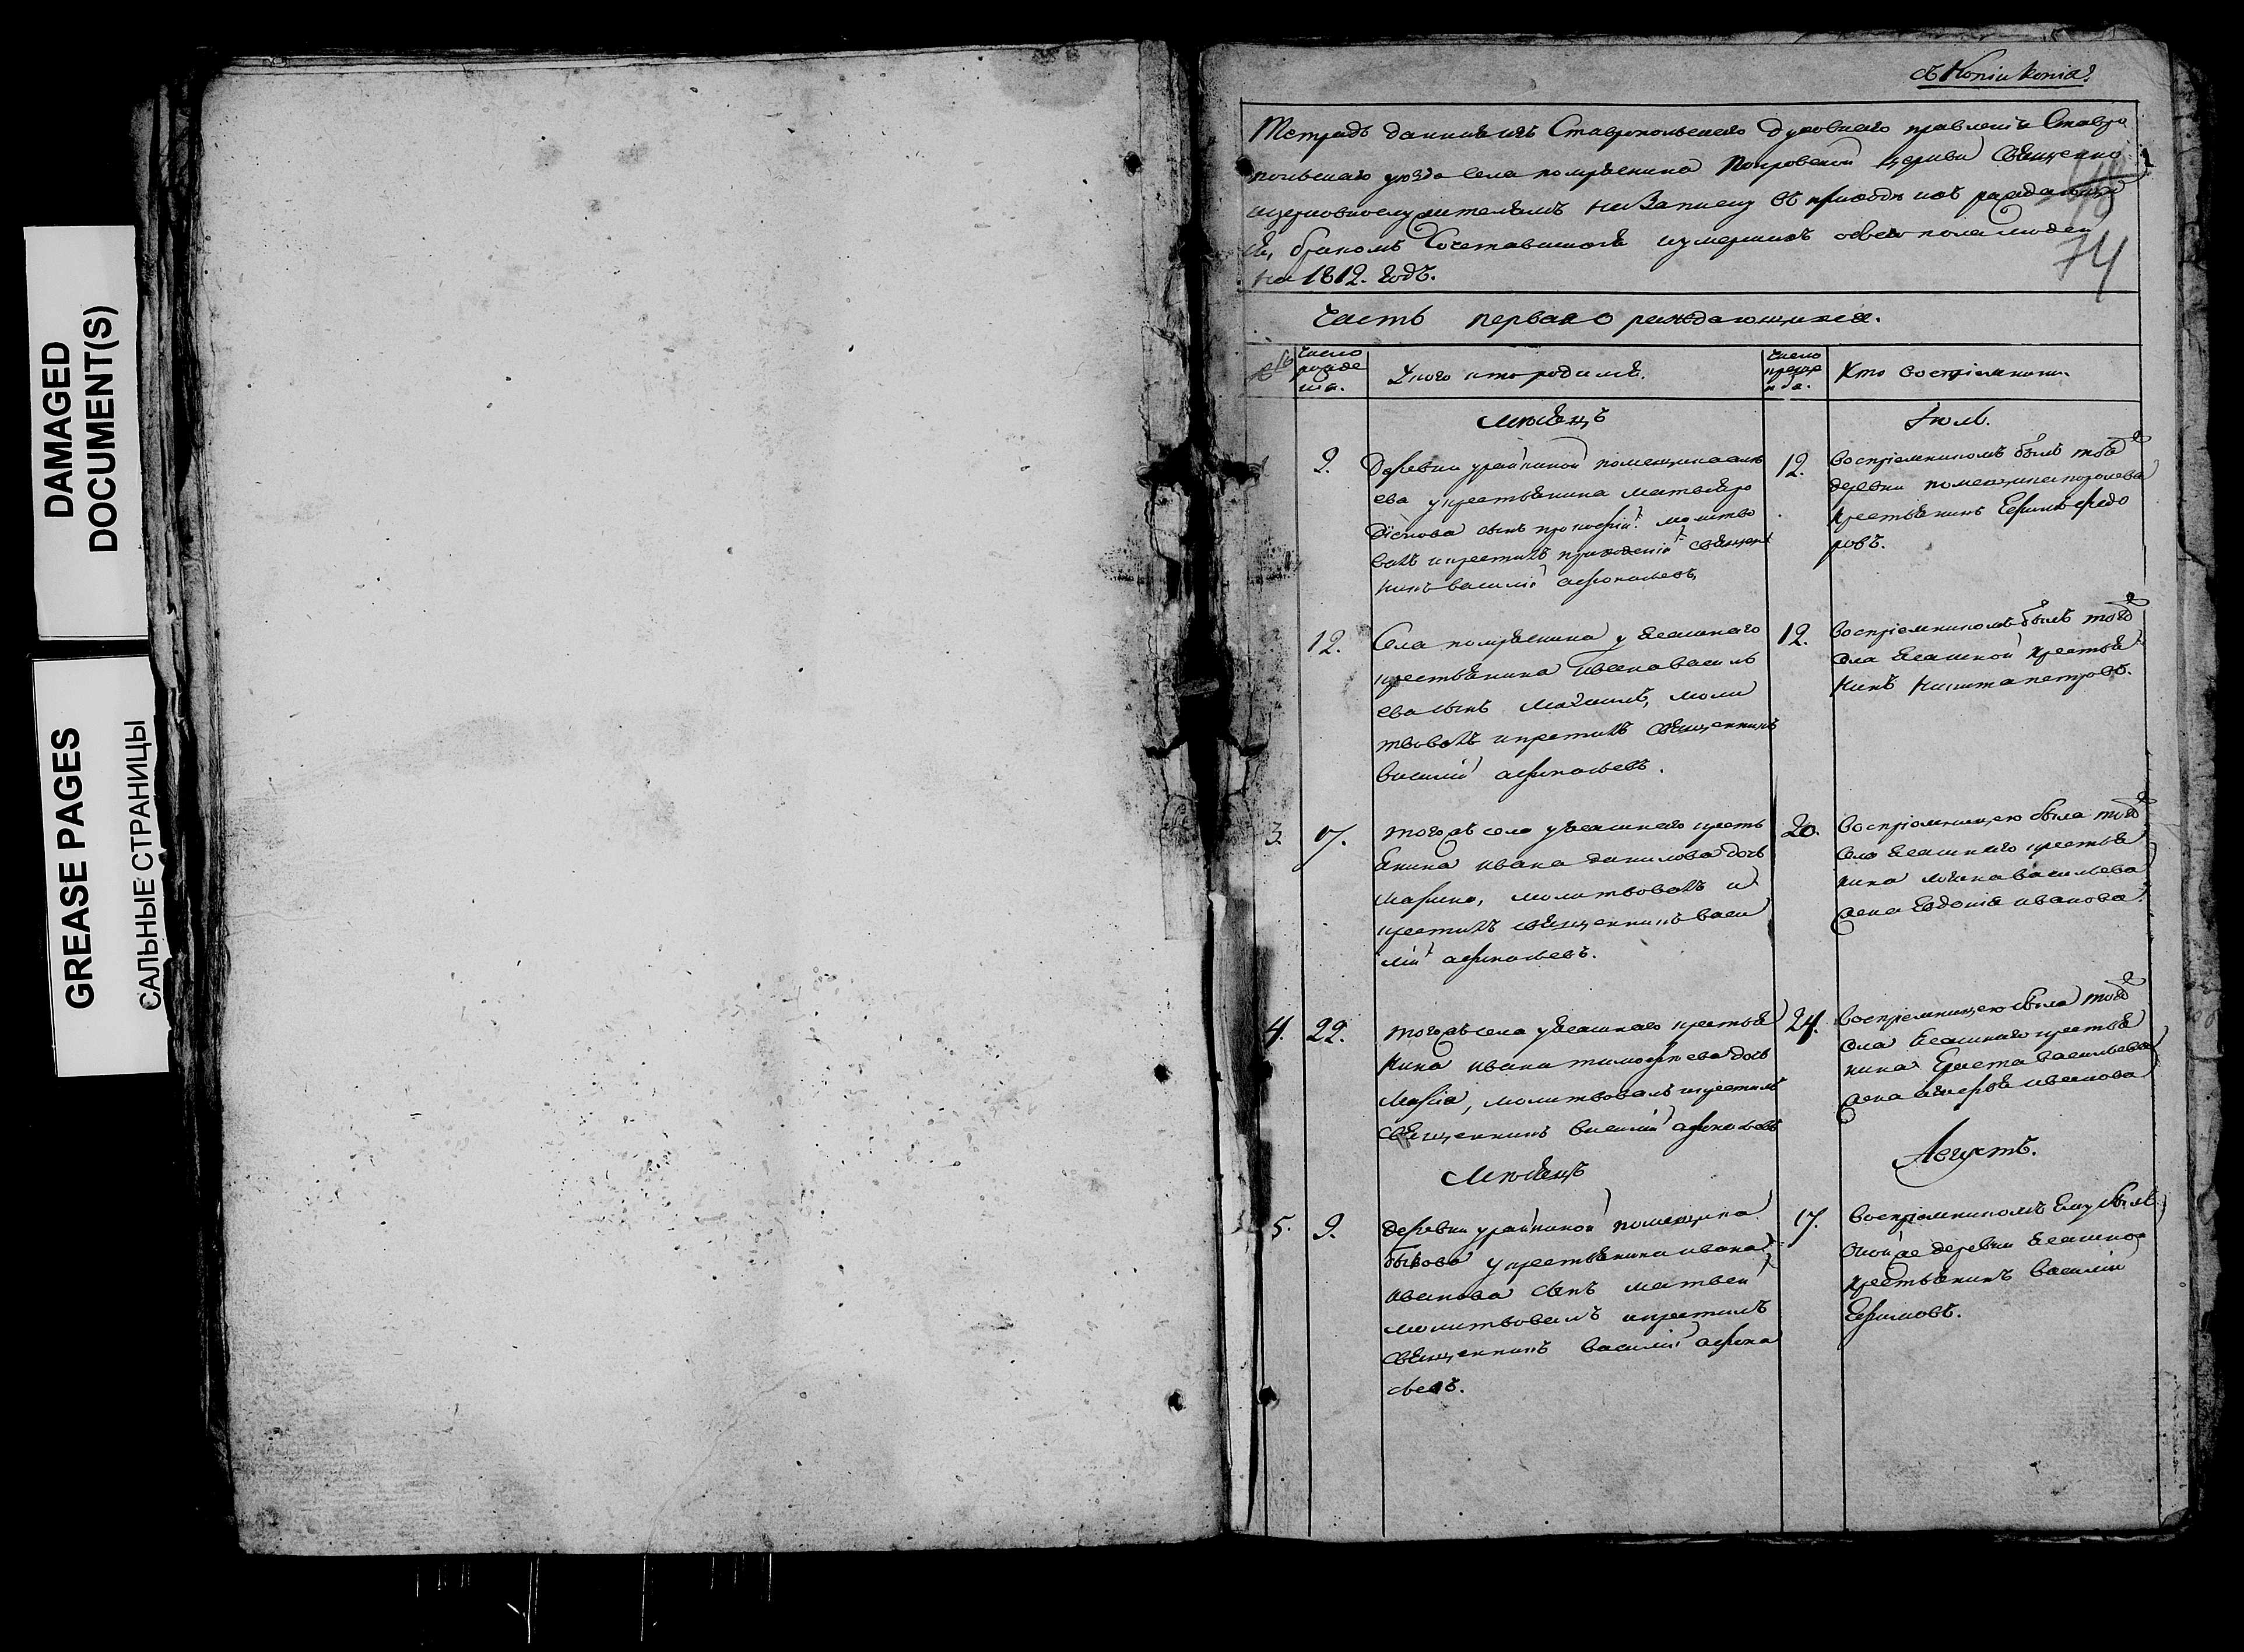 DAMAGED
DOCUMENT(S)
GREASE PAGES
САЛЬНЫЕ СТРАНИЦЫ
съ Копіи копіа
Тетрадь данная изъ Ставропольскаго духовнаго правленія Ставро
польскаго уезда села помряскина Покровской церкви священно
ицерковнослужителямъ на Записку въ приходѣ ихъ раждающих
ся, бракомъ Сочетавшихся иумершихъ обоего пола людей
на 1812. Годъ.
74
Часть первая о раждающихся.
Число рожде нія.
У кого кто родился.
Число креще нія.
Кто воспріемники.
Мѣсяцъ
Іюль.
9.
Деревни урайкиной помещика
ева укрестьянина Матвея ро
діонова сынъ прокофій. молитво
валъ икрестилъ приходскій священ
никъ василій афонасьевъ
12.
воспріемникомъ былъ тояже
деревни помещика королева
крестьянинъ Ефимъ федо
ровъ.
12.
Села помряскина у ясашнаго
крестьянина Ивана василь
ева сынъ Михаилъ, моли
твовалъ икрестилъ священникъ
василій афонасьевъ.
12.
воспріемникомъ былъ тогоже
села ясашной крестья
нинъ никита петровъ.
3.
17.
тогожъ села уясашнаго кресть
янина ивана данилова дочь
Марина, молитвовалъ и
крестилъ священникъ васи
лій афонасьевъ.
20.
воспріемницею была тогоже
села ясашнаго крестья
нина васильева
жена Евдокія иванова
4.
22.
тогожъ села уясашнаго крестья
нина ивана тимофеева дочь
Марія, молитвовалъ икрестилъ
священникъ василій афонасьевъ
24.
воспріемницею была тогоже
села ясашнаго крестья
нина васильева
жена иванова
Мѣсяцъ
Августъ.
5.
9.
деревни урайкиной помещика
быкова укрестьянина ивана
иванова сынъ матвей
молитвовалъ икрестилъ
священникъ василій афона
сьевъ.
17.
воспріемникомъ ему былъ
оной же деревни ясашной
крестьянинъ василій
Ефимовъ.